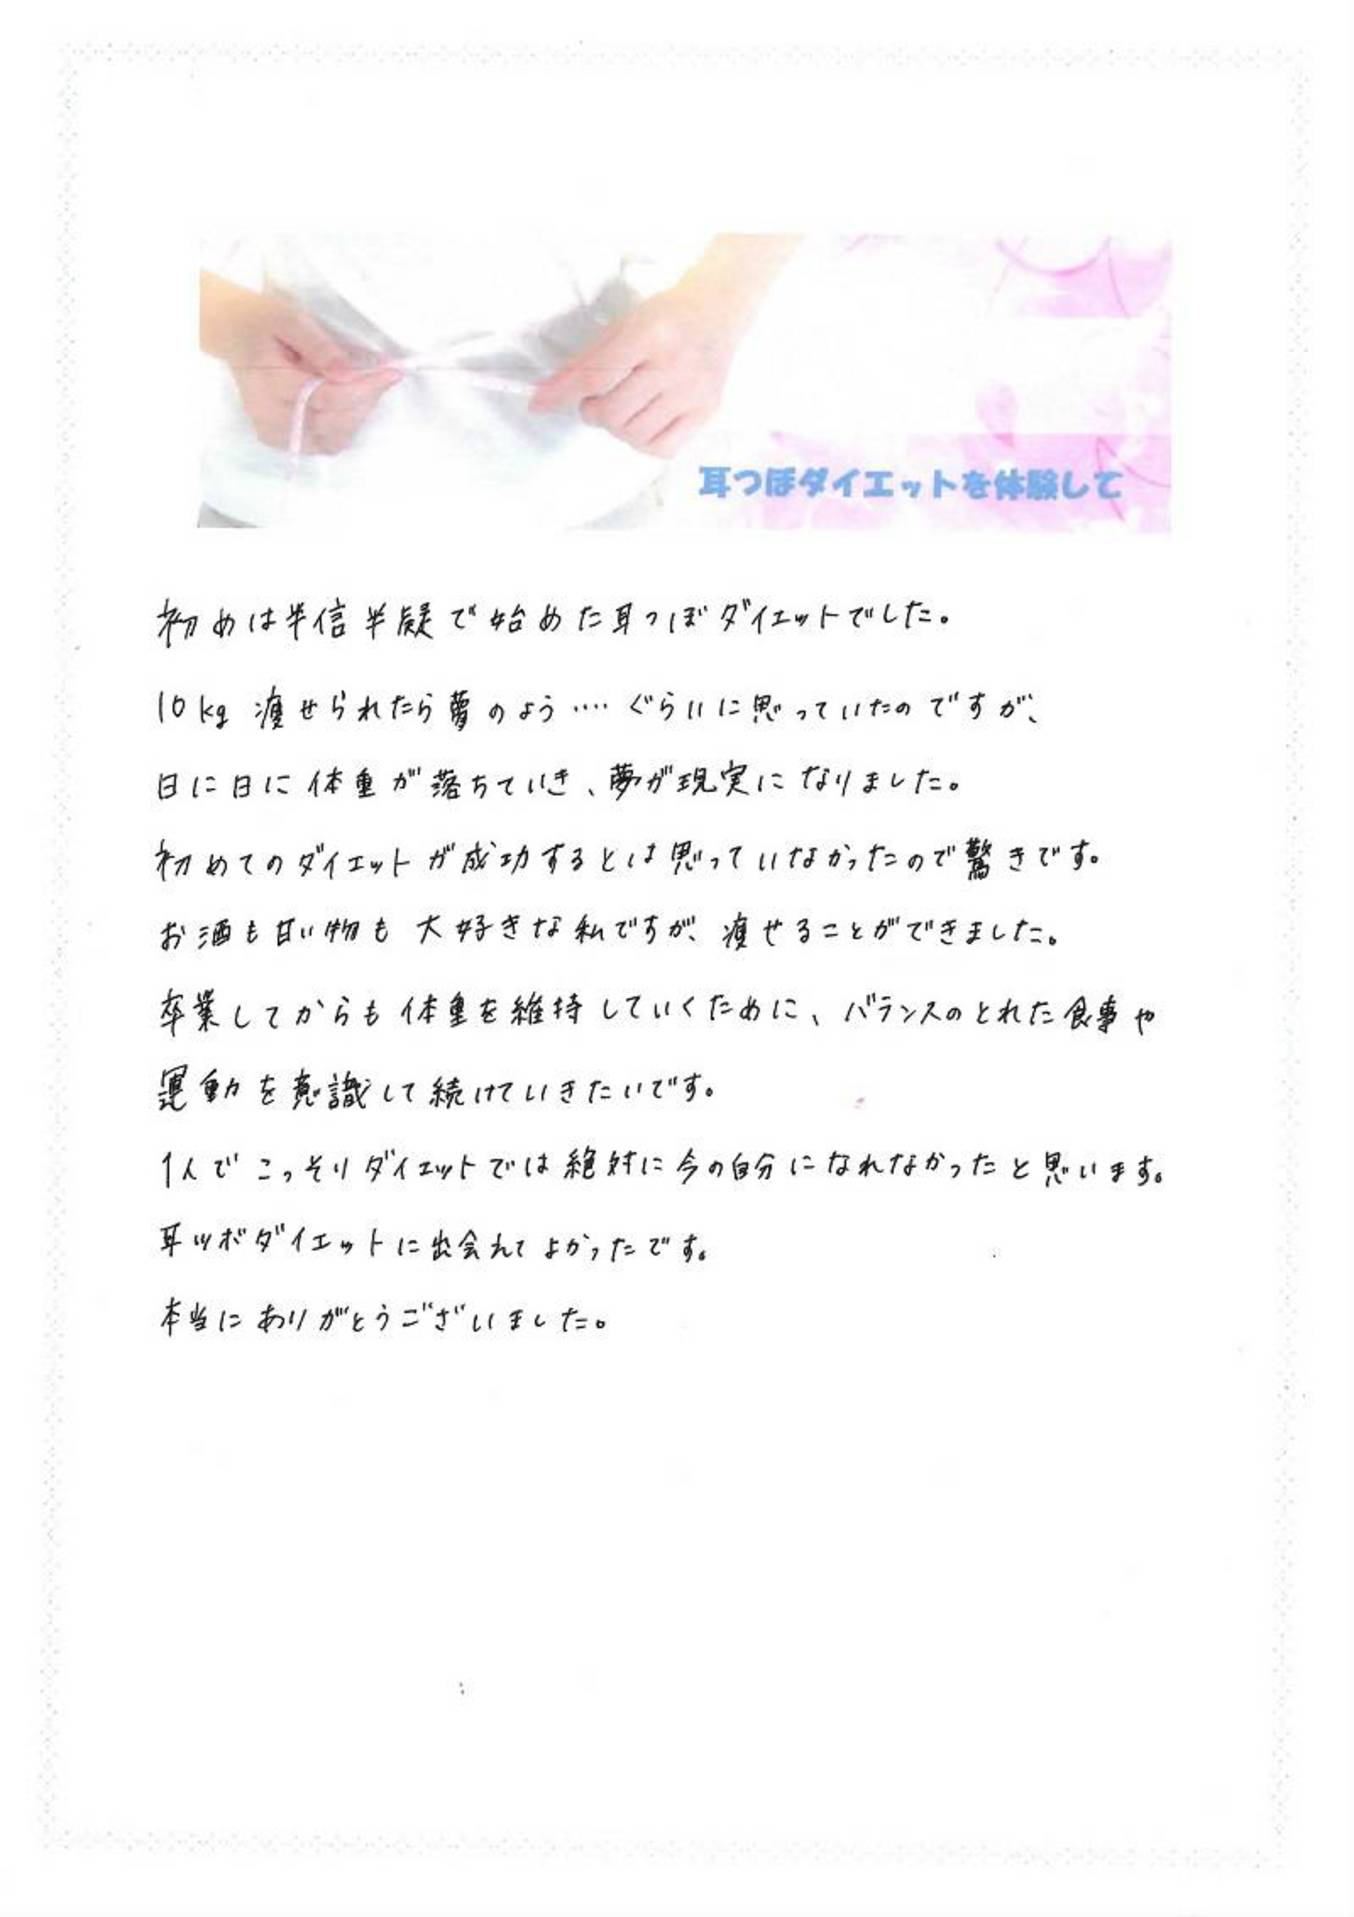 耳つぼダイエットを体験して
初めは半信半疑で始めた耳つぼダイエットでした。
10kg 痩せられたら夢のよう‥‥ぐらいに思っていたのですが、
日に日に体重が落ちていき、夢が現実になりました。
初めてのダイエットが成功するとは思っていなかったので驚きです。
お酒も甘い物も大好きな私ですが、痩せることができました。
卒業してからも体重を維持していくために、バランスのとれた食事や
運動を意識して続けていきたいです。
1人でこっそりダイエットでは絶対に今の自分になれなかったと思います。
耳ツボダイエットに出会れてよかったです。
本当にありがとうございました。